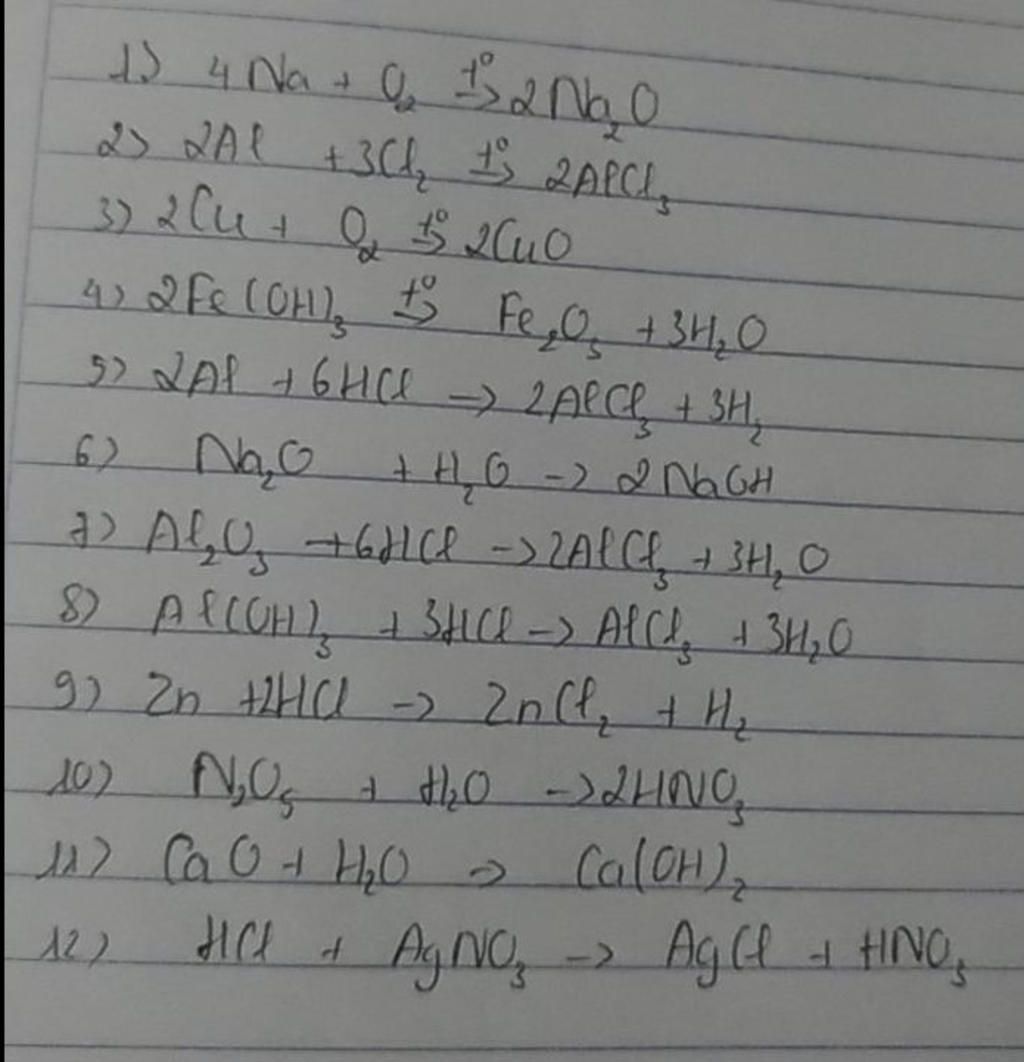 1) 4Na + O₂ t°→ 2Na₂O
2) 2Al + 3Cl₂ t°→ 2AlCl₃
3) 2Cu + O₂ t°→ 2CuO
4) 2Fe(OH)₃ t°→ Fe₂O₃ + 3H₂O
5) 2Al + 6HCl → 2AlCl₃ + 3H₂
6) Na₂O + H₂O → 2NaOH
7) Al₂O₃ + 6HCl → 2AlCl₃ + 3H₂O
8) Al(OH)₃ + 3HCl → AlCl₃ + 3H₂O
9) Zn + 2HCl → ZnCl₂ + H₂
10) N₂O₅ + H₂O → 2HNO₃
11) CaO + H₂O → Ca(OH)₂
12) HCl + AgNO₃ → AgCl + HNO₃